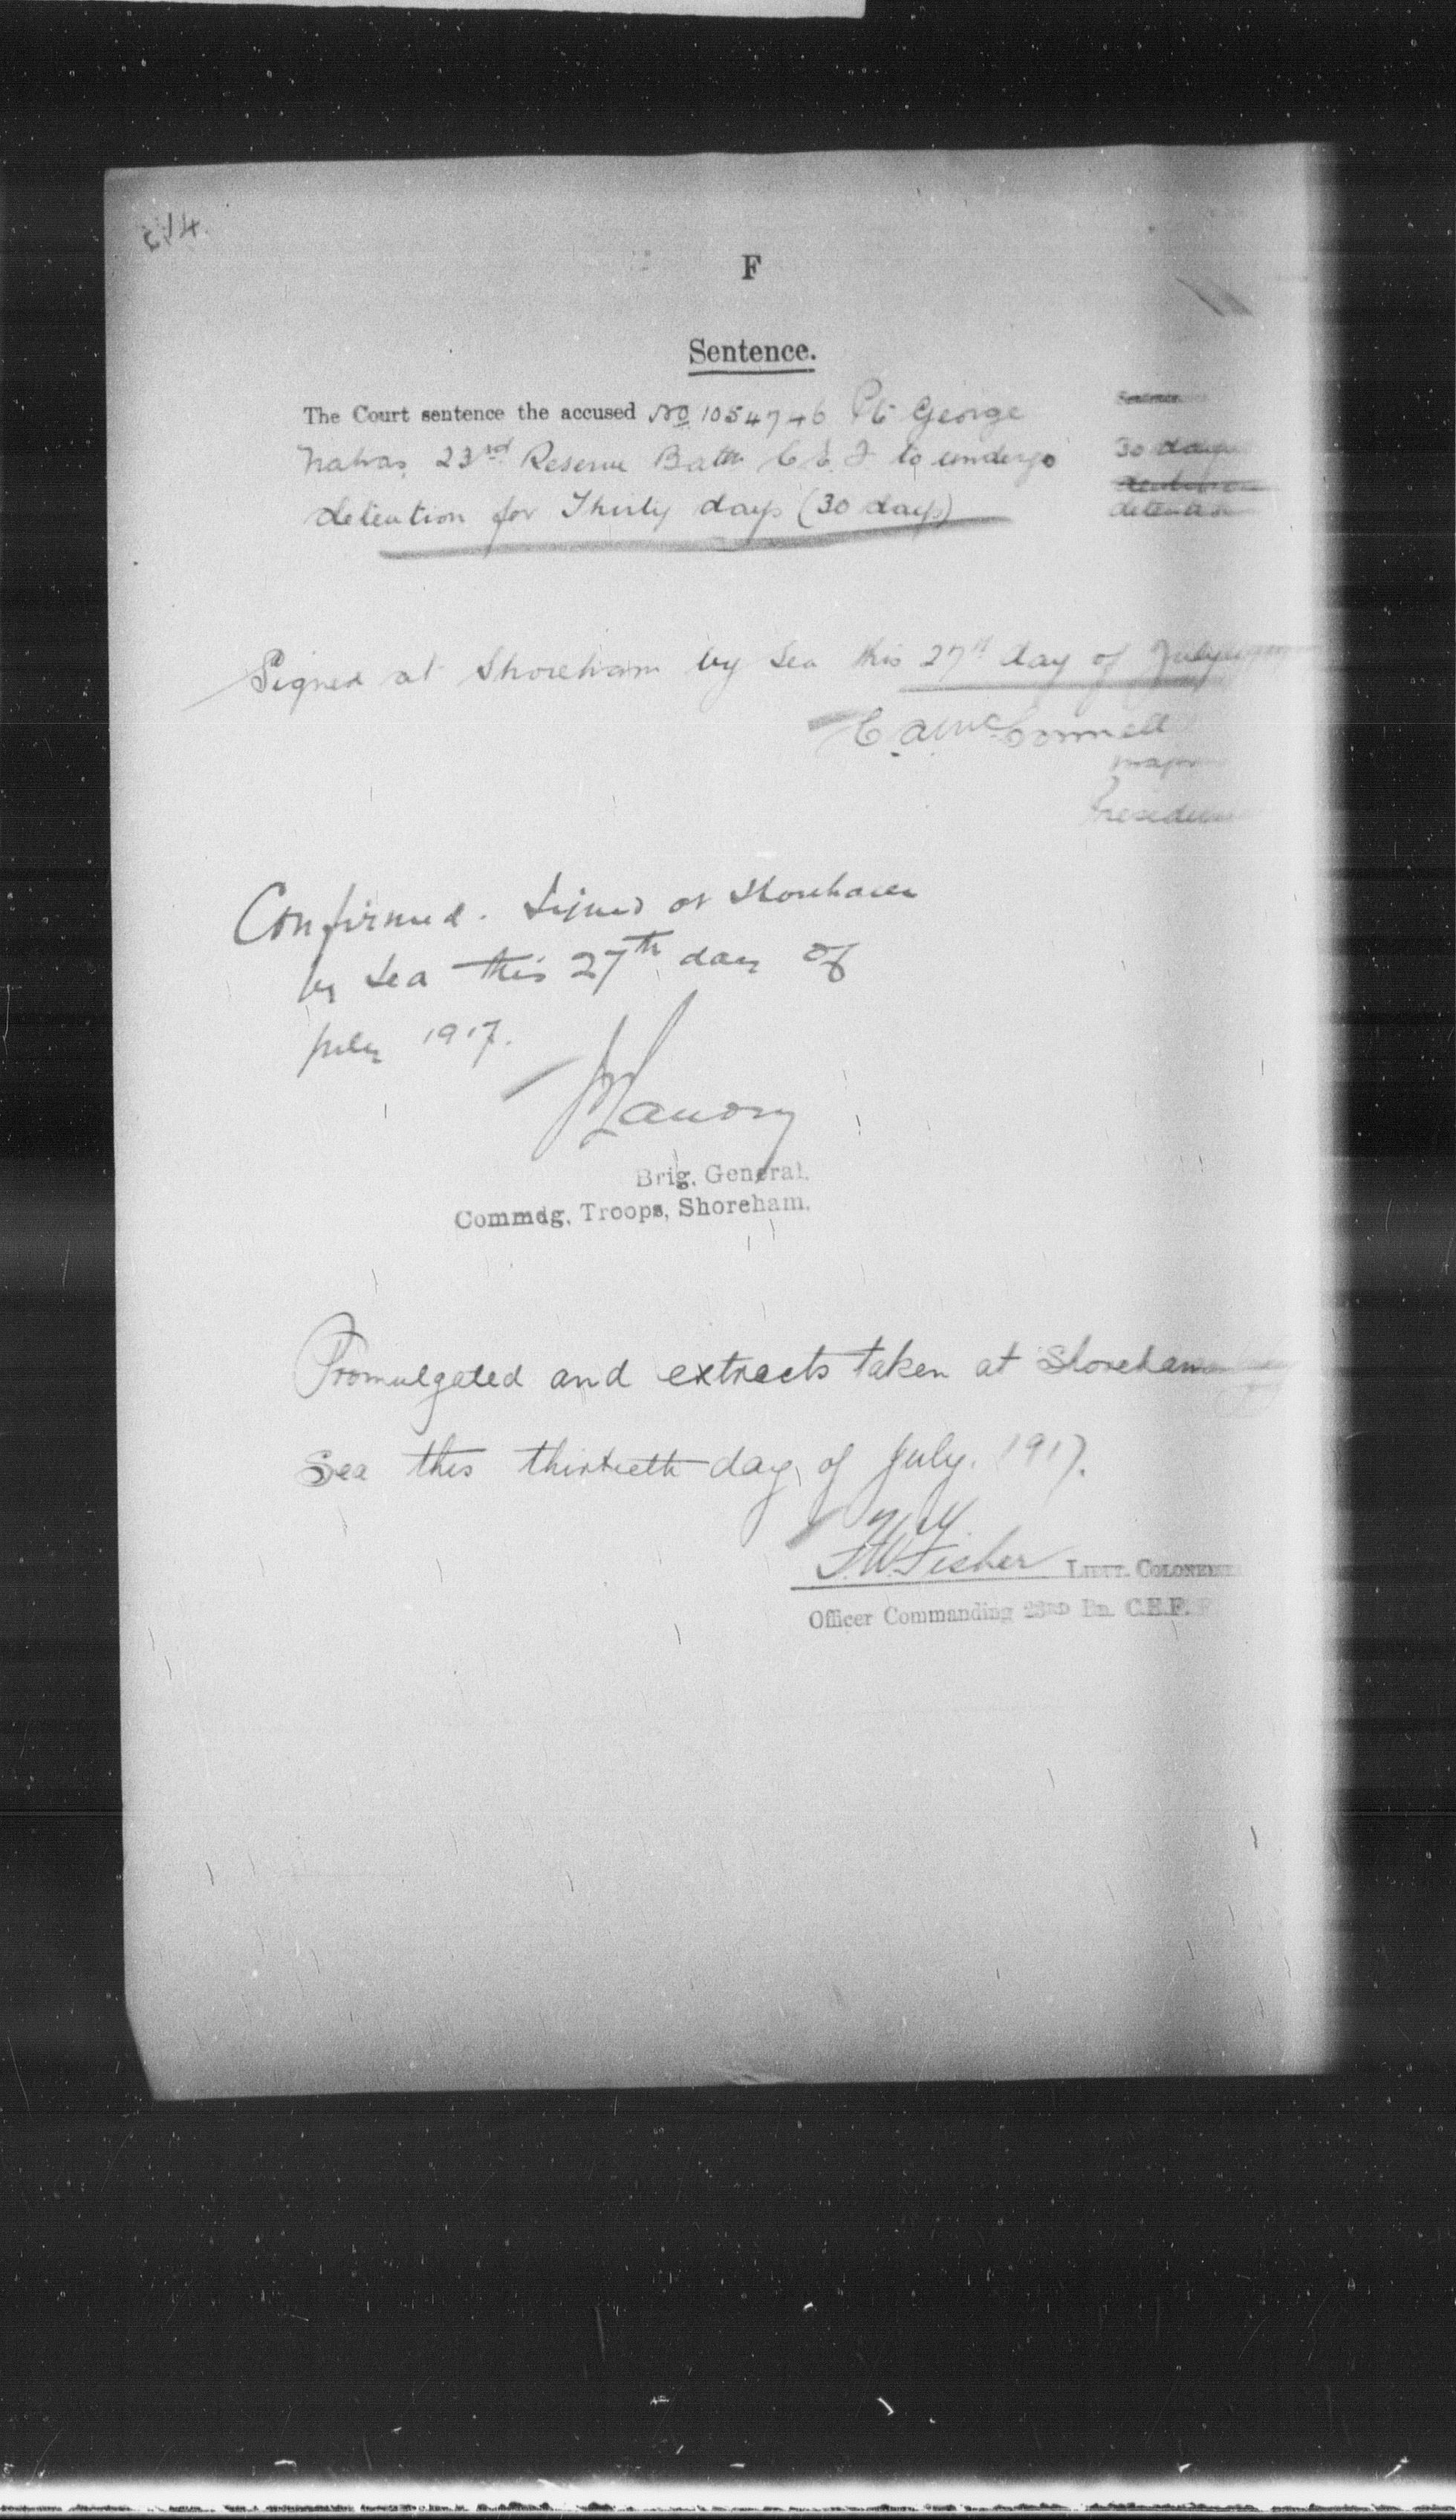 F
Sentence.
The Court sentence the accused No 1054746 Pt George
Nahas, 23rd Reserve Battn C E F to undergo
detention for Thirty days (30 days)
30 days
detention
Signed at Shoreham by Sea this 27th day of July
C A McConnell
Major
President
Confirmed. Signed at Shoreham
by Sea this 27th day of
July 1917.
Brig. General.
Commdg. Troops, Shoreham.
Promulgated and extracts taken at Shoreham
Sea this thirtieth day of July. 1917.
F.W. Fisher LIEUT. COLONEL
Officer Commanding 23RD Bn. C.E.F.